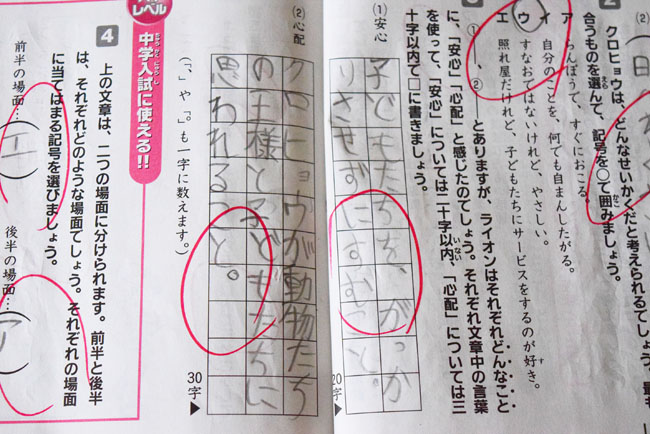 2
クロヒョウは、どんなせいかくだと考えられるでしょう。最も
合うものを選んで、記号を○で囲みましょう。
ア らんぼうで、すぐにおこる。
イ 自分のことを、何でも自まんしたがる。
ウ すなおではないけれど、やさしい。
エ 照れ屋だけれど、子どもたちにサービスをするのが好き。
3
①、②とありますが、ライオンはそれぞれどんなこと
に、「安心」「心配」と感じたのでしょう。それぞれ文章中の言葉
を使って、「安心」については二十字以内、「心配」については三
十字以内で□に書きましょう。
(1) 安心
子どもたちを、がっか
りさせずにすむこと。
20字
(2) 心配
クロヒョウが動物たち
の王様と子どもたちに
思われること。
30字
(「、」や「。」も一字に数えます。)
レベル
中学入試に使える!!
4
上の文章は、二つの場面に分けられます。前半と後半
は、それぞれどのような場面でしょう。それぞれの場面
に当てはまる記号を選びましょう。
前半の場面…(エ)
後半の場面…(ア)